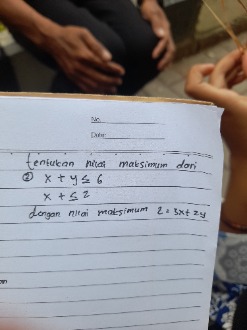 No.
Date:
tentukan nilai maksimum dari
② x + y ≤ 6
x + ≤ 2
dengan nilai maksimum z = 3x + 2y